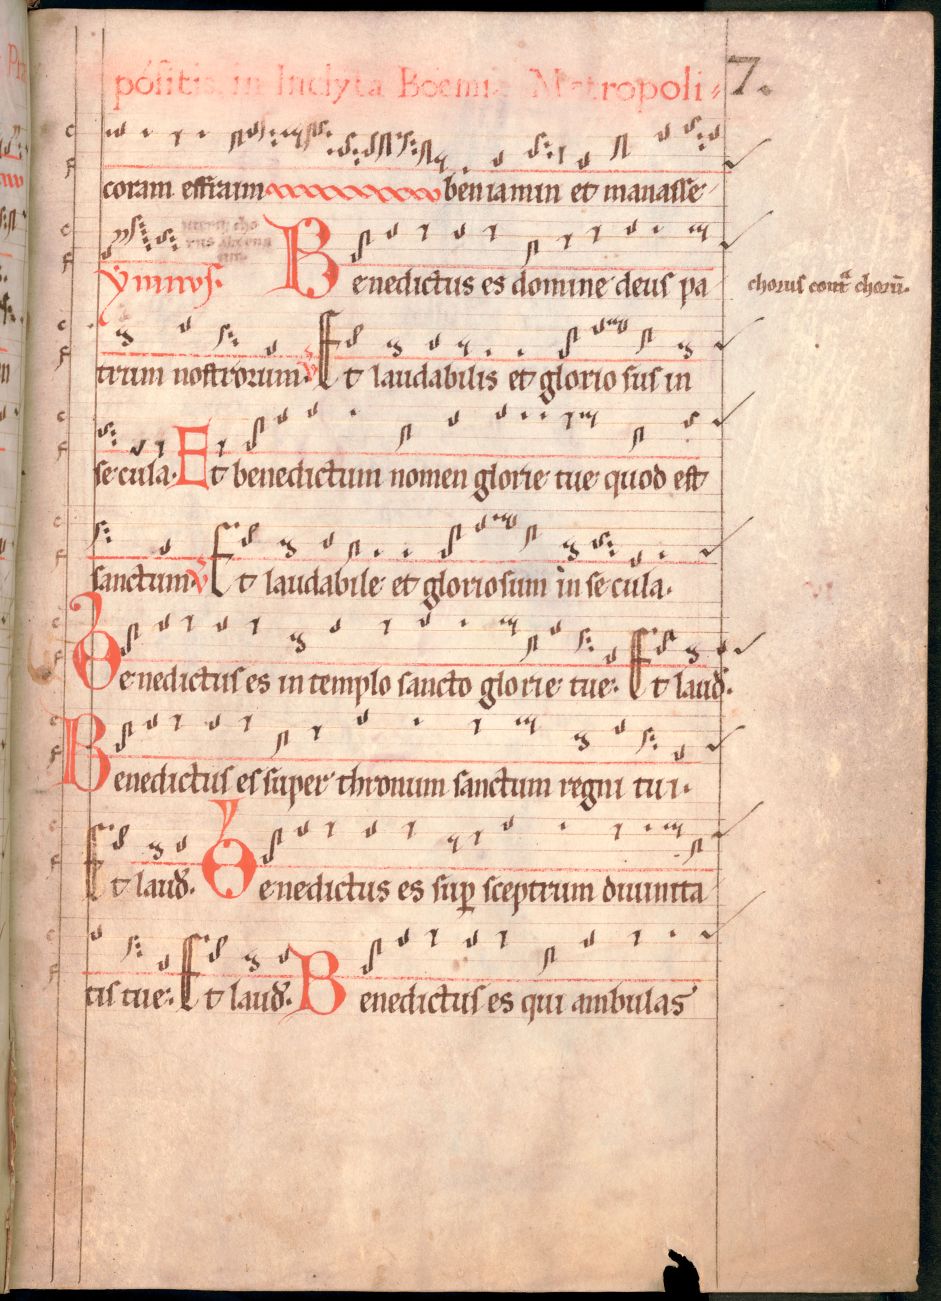 pósitis in Inclyta Boemiæ Metropoli- 7.
coram effraim beniamin et manasse
ymnus. Benedictus es domine deus pa
chorus contra chorū.
trum nostrorum. v Et laudabilis et gloriosus in
secula. Et benedictum nomen glorie tue quod est
sanctum v Et laudabile et gloriosum in secula.
Benedictus es in templo sancto glorie tue. Et laud.
Benedictus es super thronum sanctum regni tui.
Et laud. Benedictus es sup sceptrum diuinita
tis tue. Et laud. Benedictus es qui ambulas